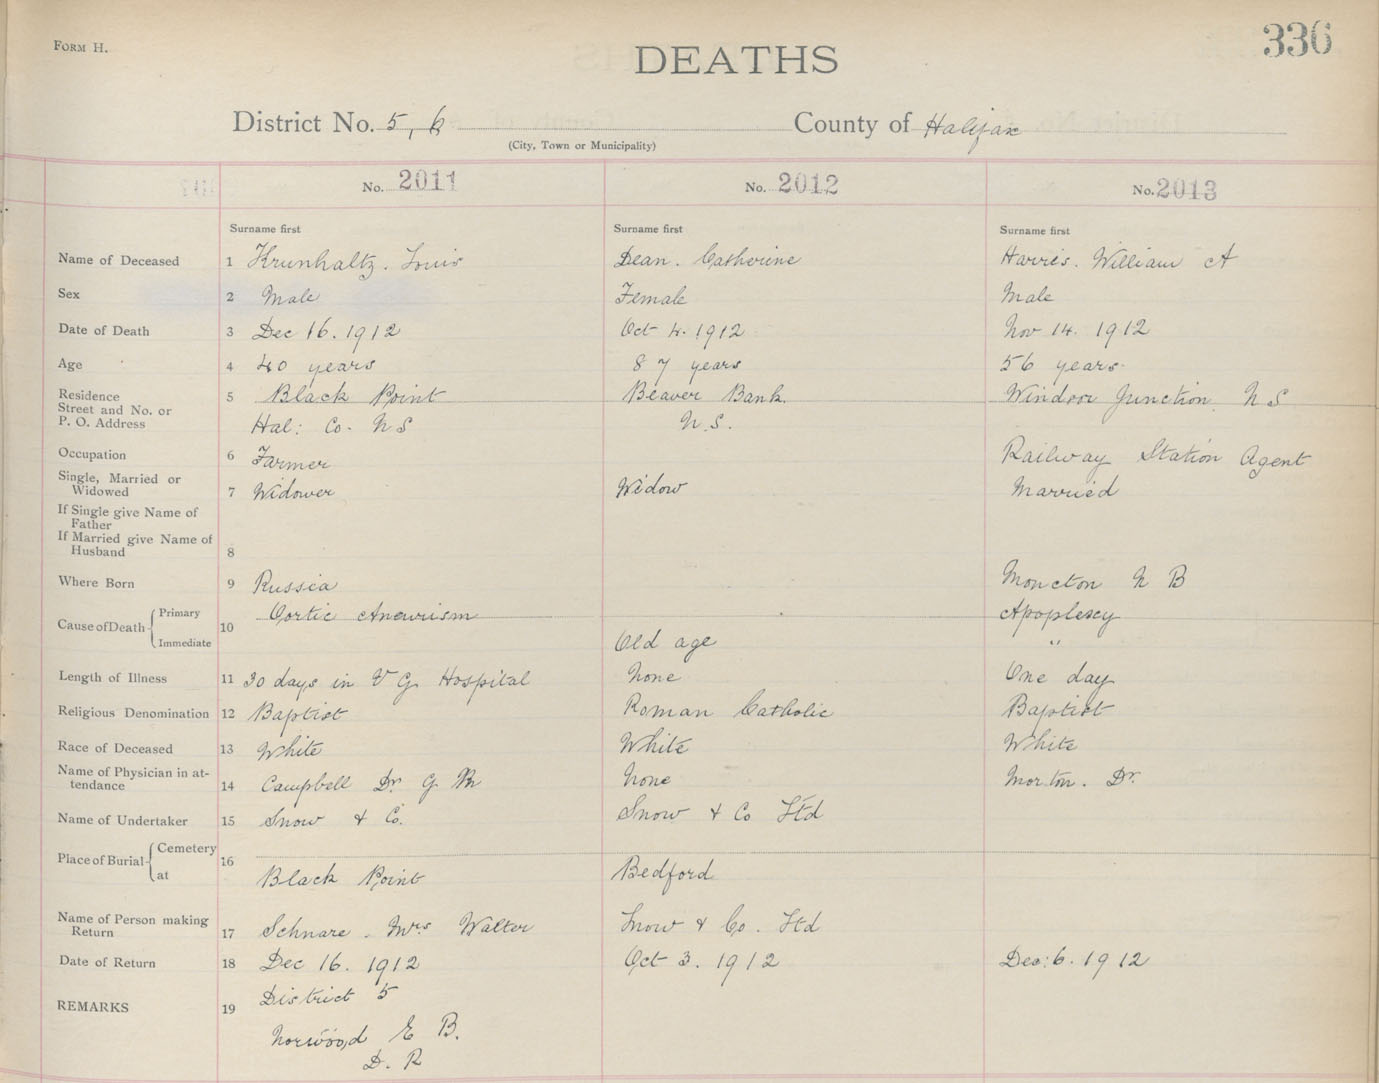 FORM H.
336
DEATHS
District No. 5, 6 County of Halifax
(City, Town or Municipality)
No. 2011 No. 2012 No. 2013
Surname first Surname first Surname first
Name of Deceased 1 Krunhaltz. Louis Dean. Catherine Harries. William A
Sex 2 Male Female Male
Date of Death 3 Dec 16. 1912 Oct 4. 1912 Nov 14. 1912
Age 4 40 years 87 years 56 years
Residence 5 Black Point Beaver Bank. Windsor Junction N S
Street and No. or
P. O. Address Hal: Co. N S N.S.
Occupation 6 Farmer Railway Station Agent
Single, Married or
Widowed 7 Widower Widow Married
If Single give Name of
Father
If Married give Name of
Husband 8
Where Born 9 Russia Moncton N B
Cause of Death Primary 10 Aortic Aneurism Apoplexy
Immediate Old age "
Length of Illness 11 30 days in V G Hospital None One day
Religious Denomination 12 Baptist Roman Catholic Baptist
Race of Deceased 13 White White White
Name of Physician in at-
tendance 14 Campbell Dr. G M None Morton. Dr.
Name of Undertaker 15 Snow & Co. Snow & Co Ltd
Place of Burial Cemetery 16
at Black Point Bedford
Name of Person making
Return 17 Schnare. Mrs Walter Snow & Co. Ltd
Date of Return 18 Dec 16. 1912 Oct 3. 1912 Dec: 6. 1912
REMARKS 19 District 5
Norwood E B.
D. R